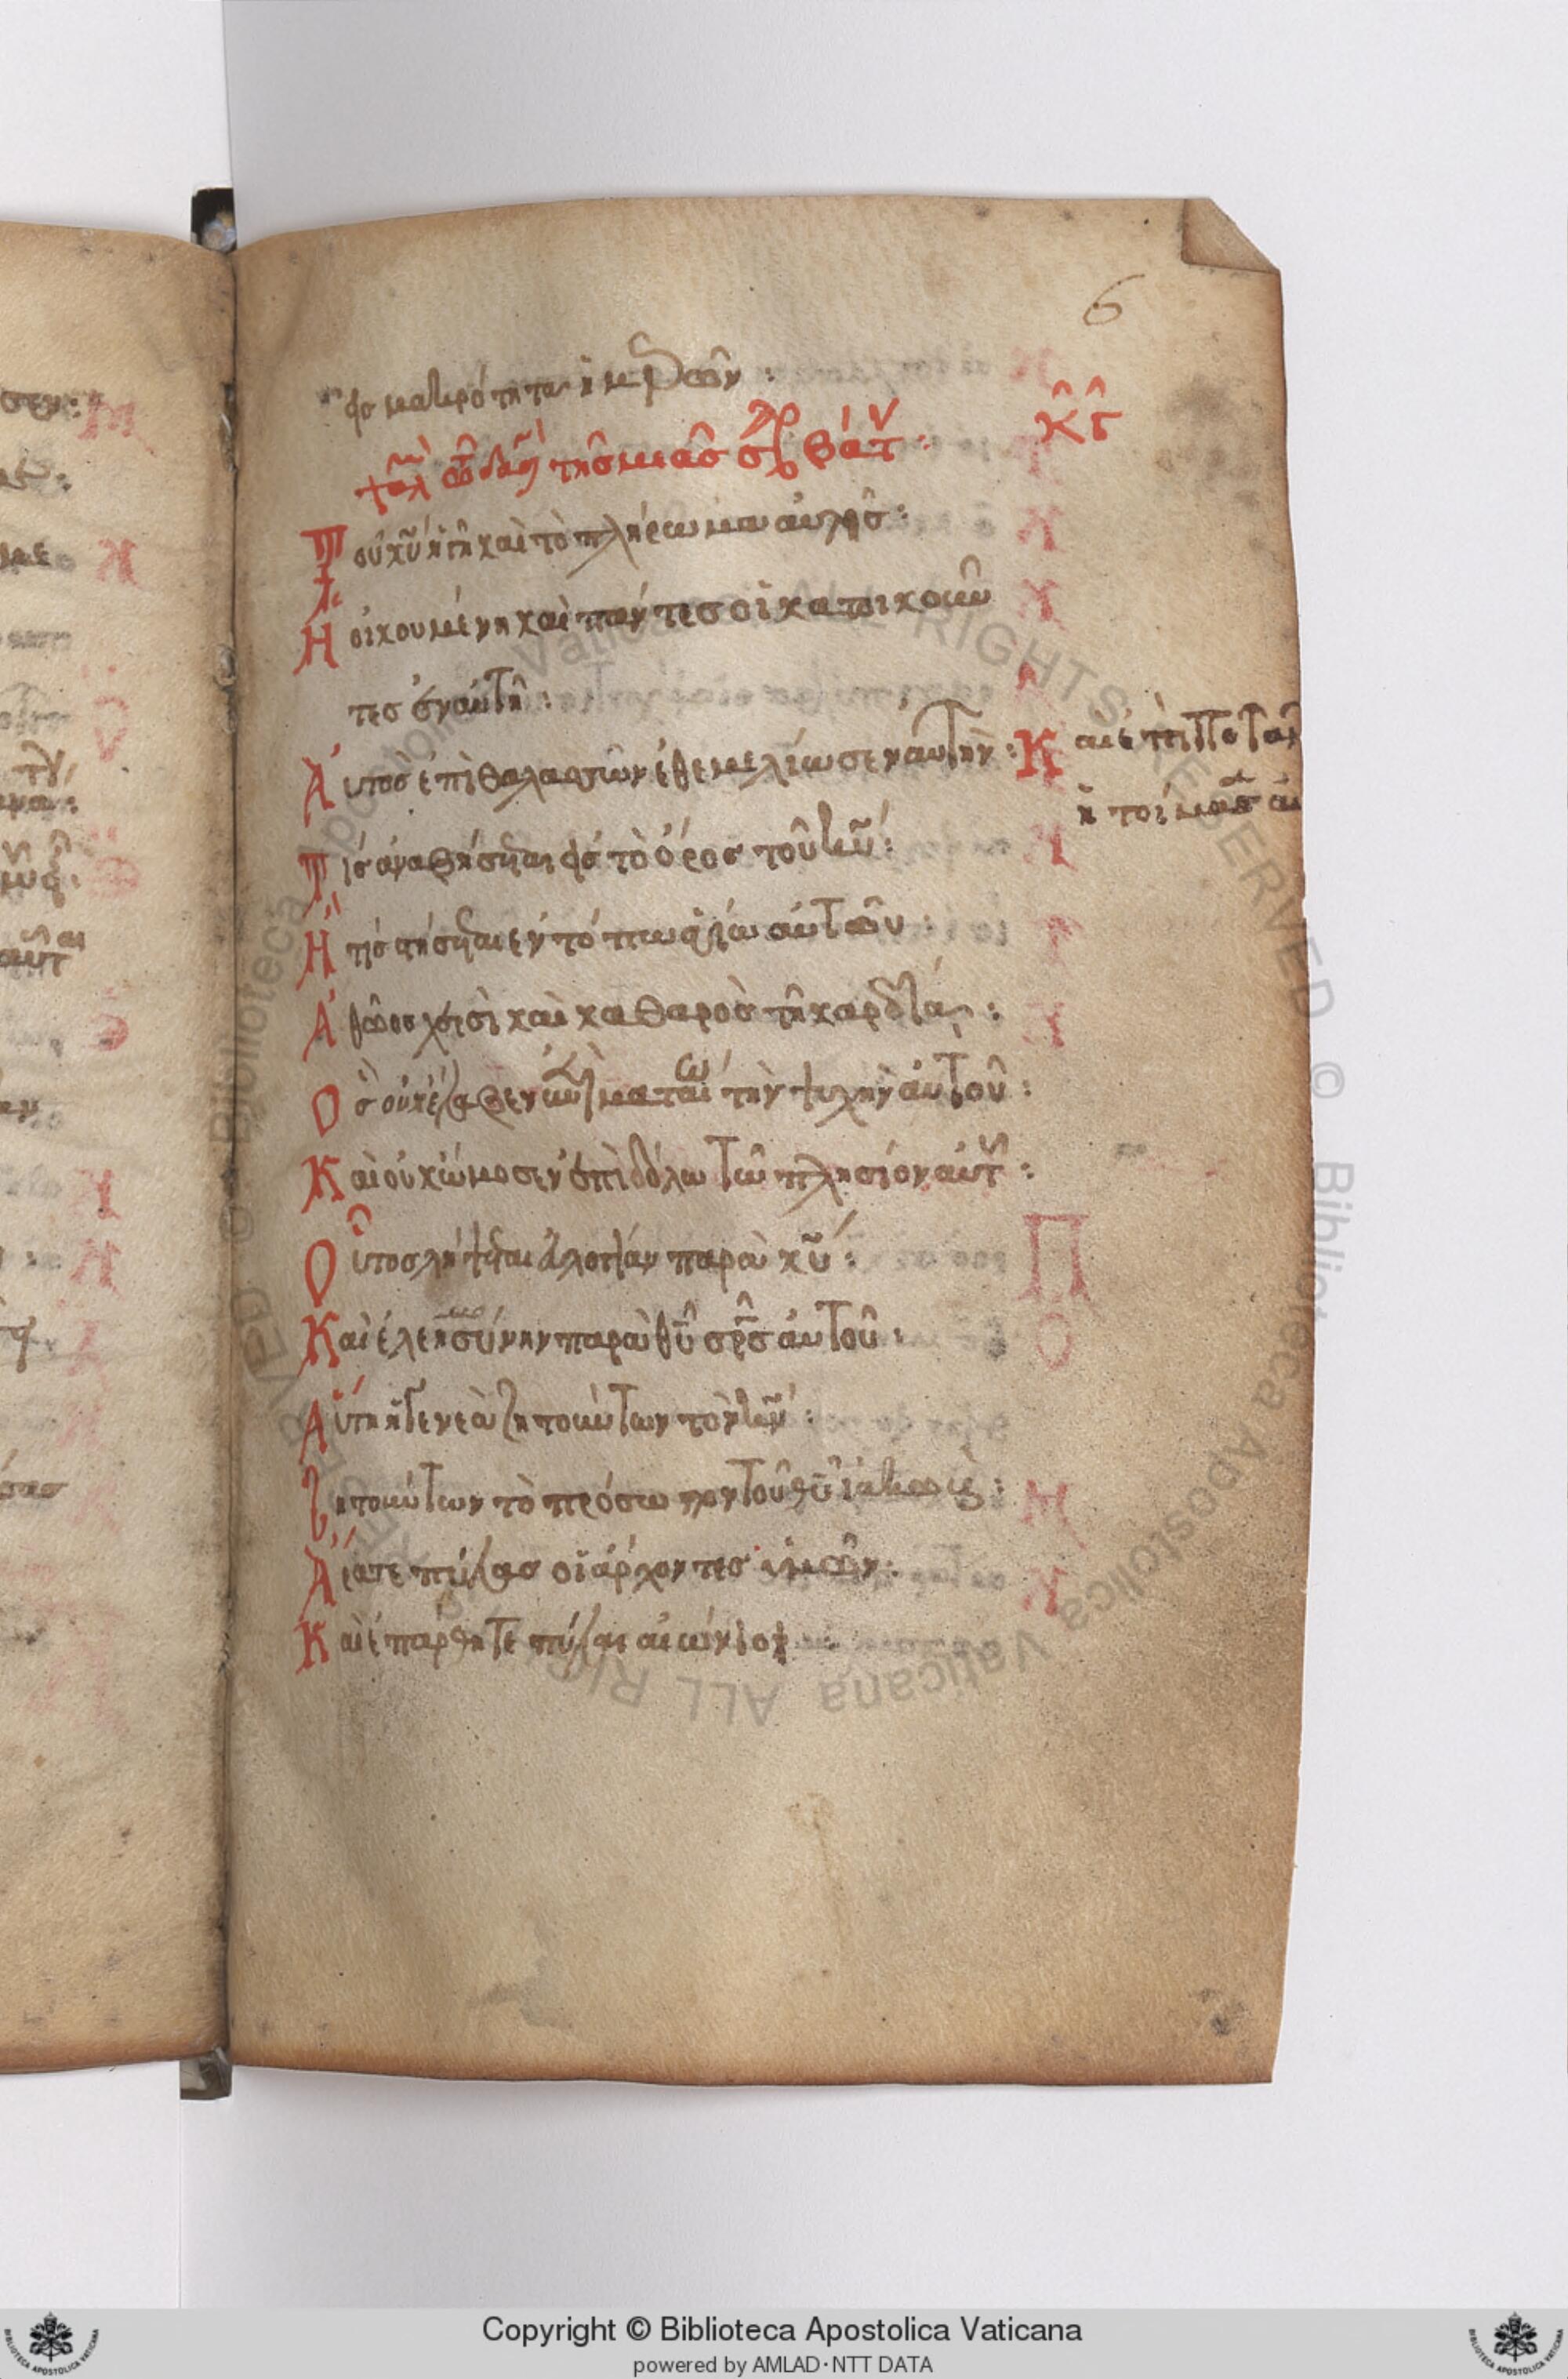 6
εἰς μακρότητα ἡμερῶν :
ψαλ τῷ δαδ τῆς μιᾶς σαββάτων : κγ
Τοῦ κυ ἡ γῆ καὶ τὸ πλήρωμα αὐτῆς :
Ἡ οἰκουμένη καὶ πάντες οἱ κατοικοῦν
τες ἐν αὐτῆ :
Αὐτὸς ἐπὶ θαλασσῶν ἐθεμελίωσεν αὐτὴν : Καὶ ἐπὶ ποταμ
ἡτοίμασεν αὐ
Τίς ἀναβήσεται εἰς τὸ ὄρος τοῦ κυ :
Ἢ τίς στήσεται ἐν τόπω ἁγίω αὐτοῦ :
Ἀθῶος χερσὶ καὶ καθαρὸς τῆ καρδία :
Ὃς οὐκ ἔλαβεν ἐπὶ ματαίω τὴν ψυχὴν αὐτοῦ :
Καὶ οὐκ ὤμοσεν ἐπὶ δόλω τῶ πλησίον αὐτοῦ :
Οὗτος λήψεται εὐλογίαν παρὰ κυ :
Καὶ ἐλεημοσύνην παρὰ θυ σρς αὐτοῦ :
Αὕτη ἡ γενεὰ ζητούντων τὸν κν :
Ζητούντων τὸ πρόσωπον τοῦ θυ ἰακώβ :
Ἄρατε πύλας οἱ ἄρχοντες ὑμῶν :
Καὶ ἐπάρθητε πύλαι αἰώνιοι
Copyright © Biblioteca Apostolica Vaticana
powered by AMLAD·NTT DATA